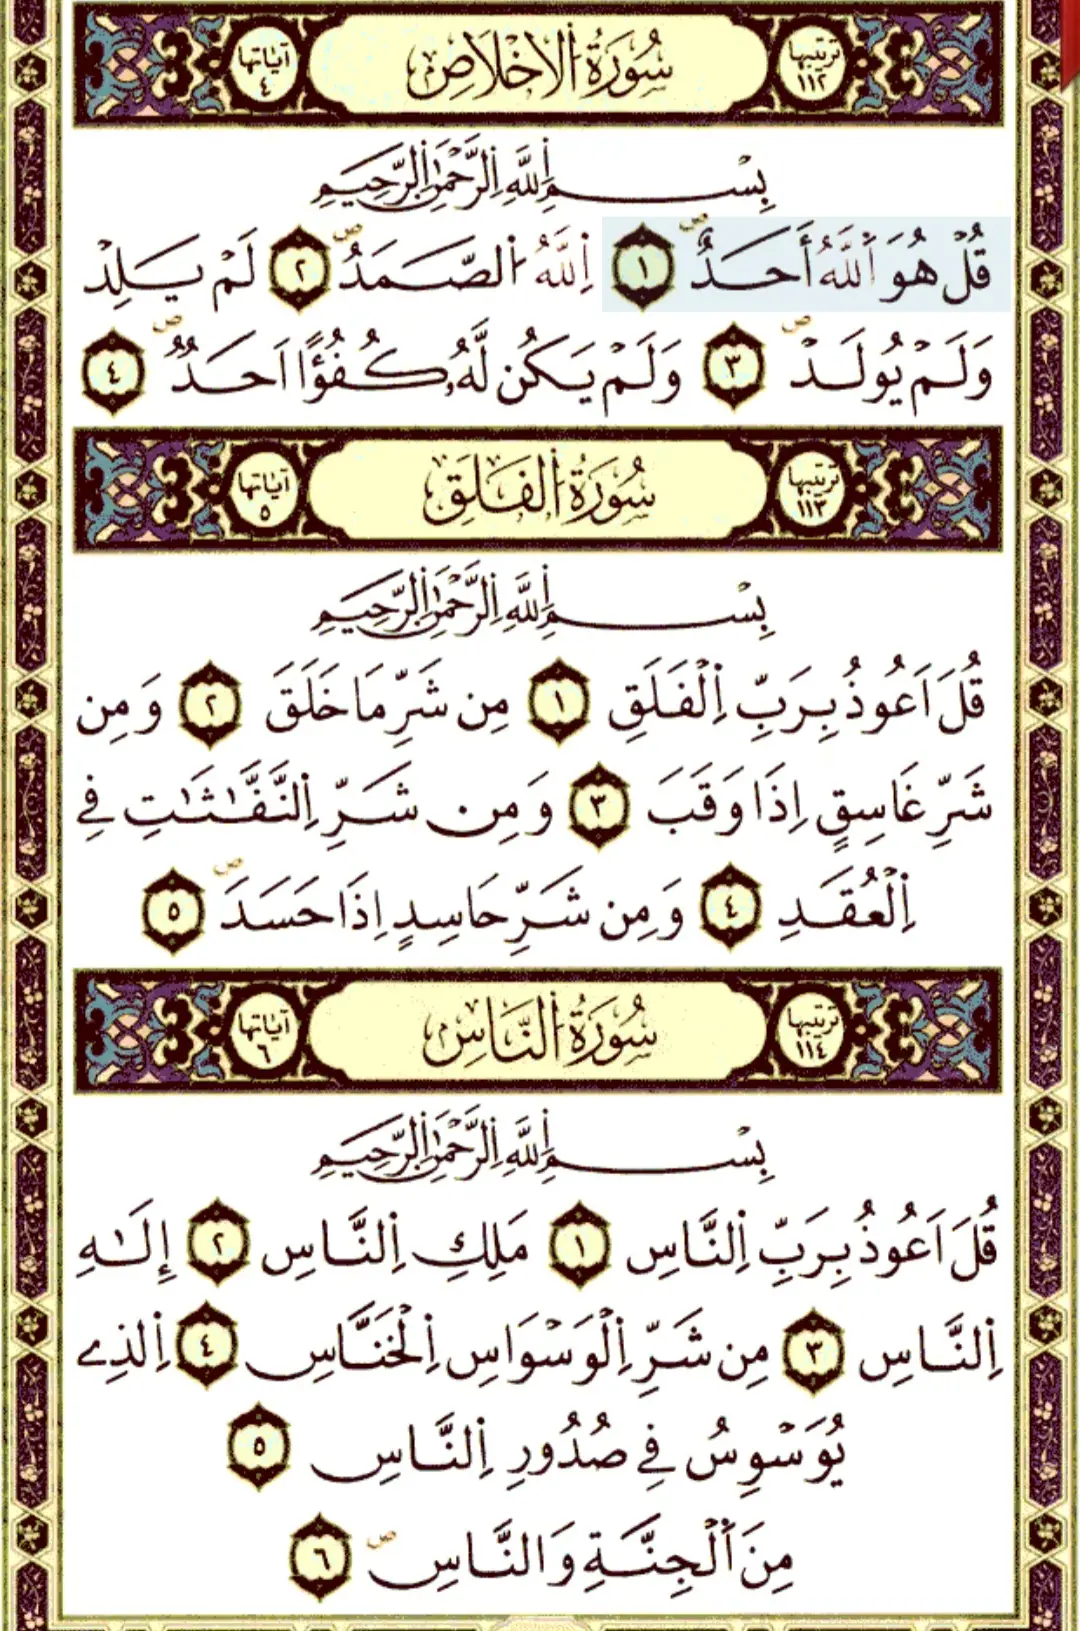 ترتيبها ١١٢ سُورَةُ اُلِاخْلَاصِ آياتها ٤
بِسْمِ اِللَّهِ اِلرَّحْمَٰنِ اِلرَّحِيمِ
قُلْ هُوَ اَللَّهُ أَحَدٌ ۖ ١ اِللَّهُ اُلصَّمَدُ ۖ ٢ لَمْ يَلِدْ
وَلَمْ يُولَدْ ۖ ٣ وَلَمْ يَكُن لَّهُۥ كُفُؤًا اَحَدٌ ۖ ٤
ترتيبها ١١٣ سُورَةُ اُلْفَلَقِ آياتها ٥
بِسْمِ اِللَّهِ اِلرَّحْمَٰنِ اِلرَّحِيمِ
قُلَ اَعُوذُ بِرَبِّ اِلْفَلَقِ ١ مِن شَرِّ مَا خَلَقَ ٢ وَمِن
شَرِّ غَاسِقٍ اِذَا وَقَبَ ٣ وَمِن شَرِّ اِلنَّفَّٰثَٰتِ فِے
اِلْعُقَدِ ٤ وَمِن شَرِّ حَاسِدٍ اِذَا حَسَدَ ۖ ٥
ترتيبها ١١٤ سُورَةُ اُلنَّاسِ آياتها ٦
بِسْمِ اِللَّهِ اِلرَّحْمَٰنِ اِلرَّحِيمِ
قُلَ اَعُوذُ بِرَبِّ اِلنَّاسِ ١ مَلِكِ اِلنَّاسِ ٢ إِلَٰهِ
اِلنَّاسِ ٣ مِن شَرِّ اِلْوَسْوَاسِ اِلْخَنَّاسِ ٤ اِلذِے
يُوَسْوِسُ فِے صُدُورِ اِلنَّاسِ ٥
مِنَ اَلْجِنَّةِ وَالنَّاسِ ۖ ٦